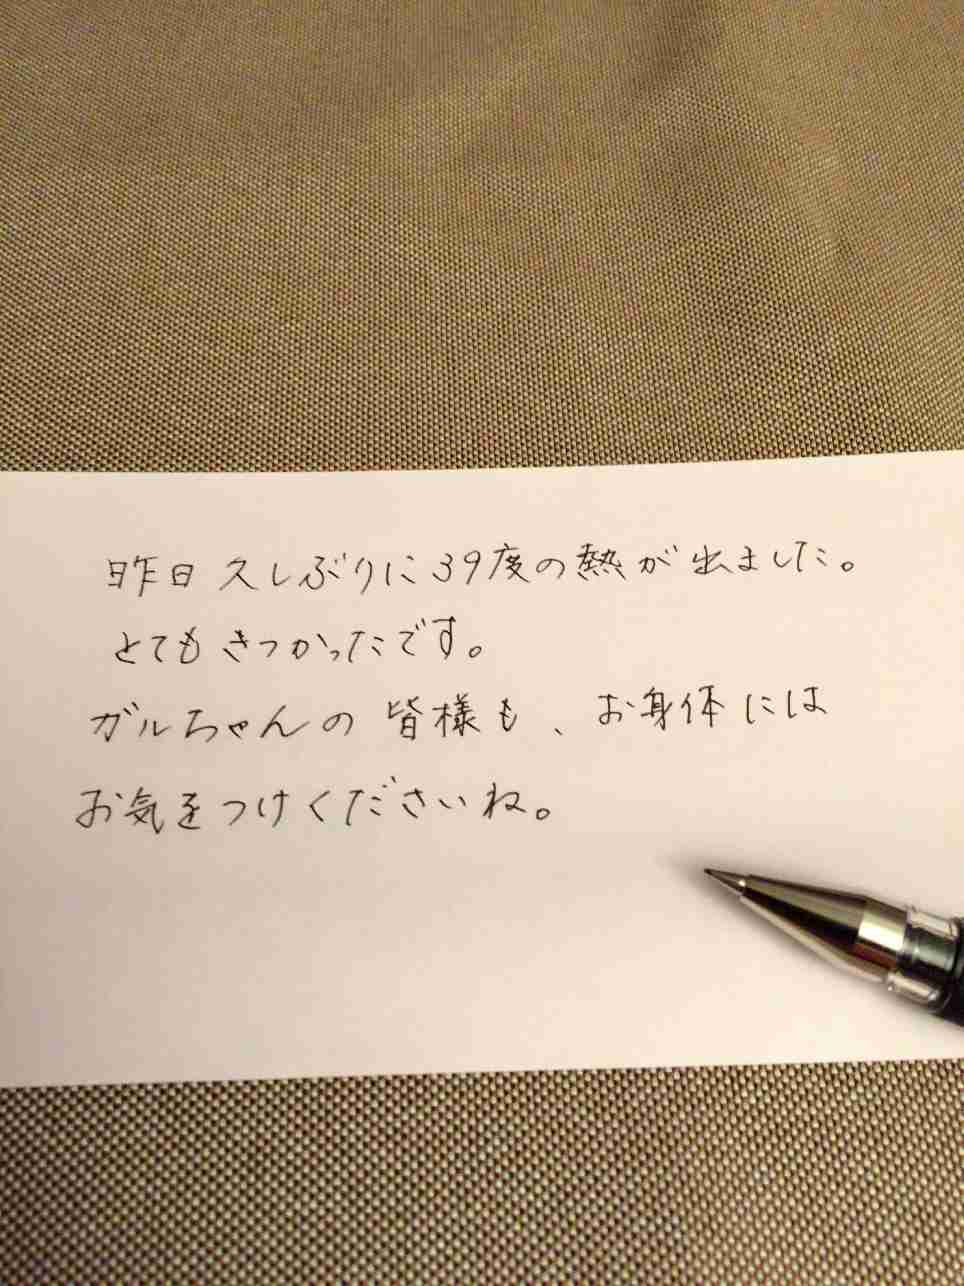 昨日久しぶりに39度の熱が出ました。
とてもきつかったです。
ガルちゃんの皆様も、お身体には
お気をつけくださいね。